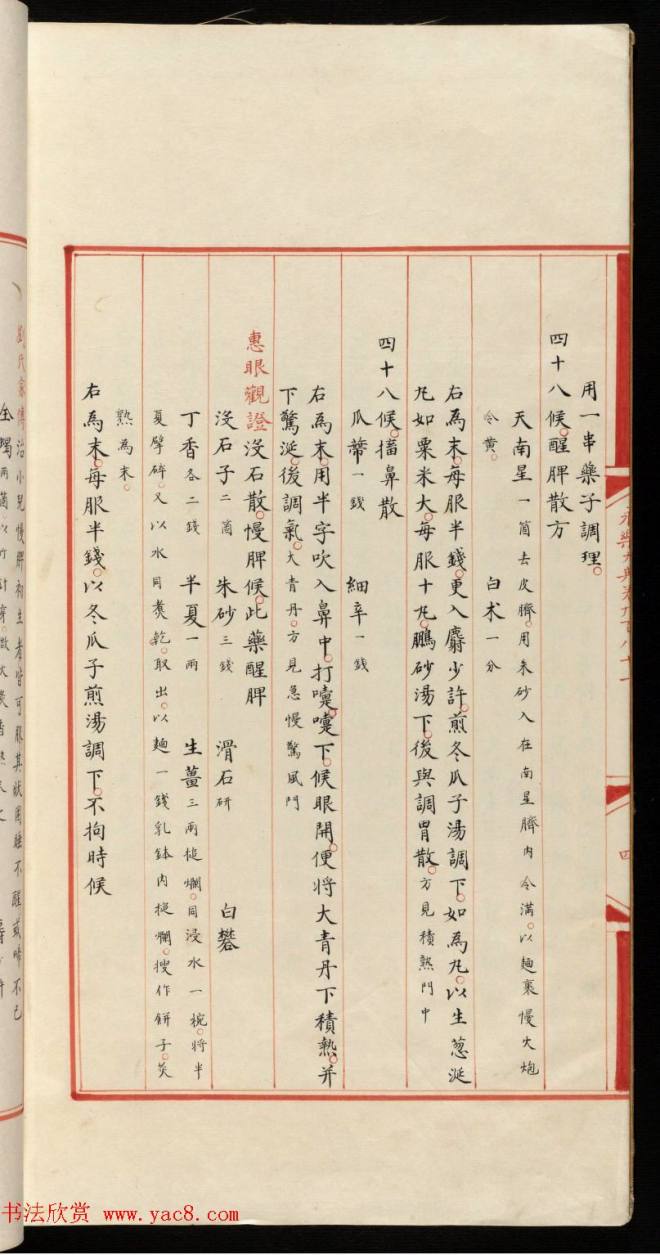 用一串藥子調理。
四十八候醒脾散方
天南星一箇去皮臍。用朱砂入在南星臍內令滿。以麵裹慢火炮
令黃。 白朮一分
右為末。每服半錢。更入麝少許。煎冬瓜子湯調下。如為丸。以生葱涎
丸如粟米大。每服十丸。鵬砂湯下。後與調胃散。方見積熱門中
四十八候。搐鼻散
瓜蒂一錢 細辛一錢
右為末。用半字吹入鼻中。打嚏。嚏下。候眼開。便將大青丹下積熱。并
下驚涎。後調氣。大青丹。方見急慢驚風門
惠眼觀證 沒石散。慢脾候。此藥醒脾
沒石子二箇 朱砂三錢 滑石研 白礬
丁香各二錢 半夏一兩 生薑三兩搥爛。同浸水一椀。將半
夏擘碎。又以水同煑乾。取出。以麵一錢乳鉢內搥爛。搜作餅子。炙
熟為末。
右為末。每服半錢。以冬瓜子煎湯調下。不拘時候
永樂大典卷九百八十一
四
劉氏家傳治小兒慢脾初生者皆可服其狀困睡不醒或啼不已
全蝎兩箇以竹
书法欣赏 www.yac8.com